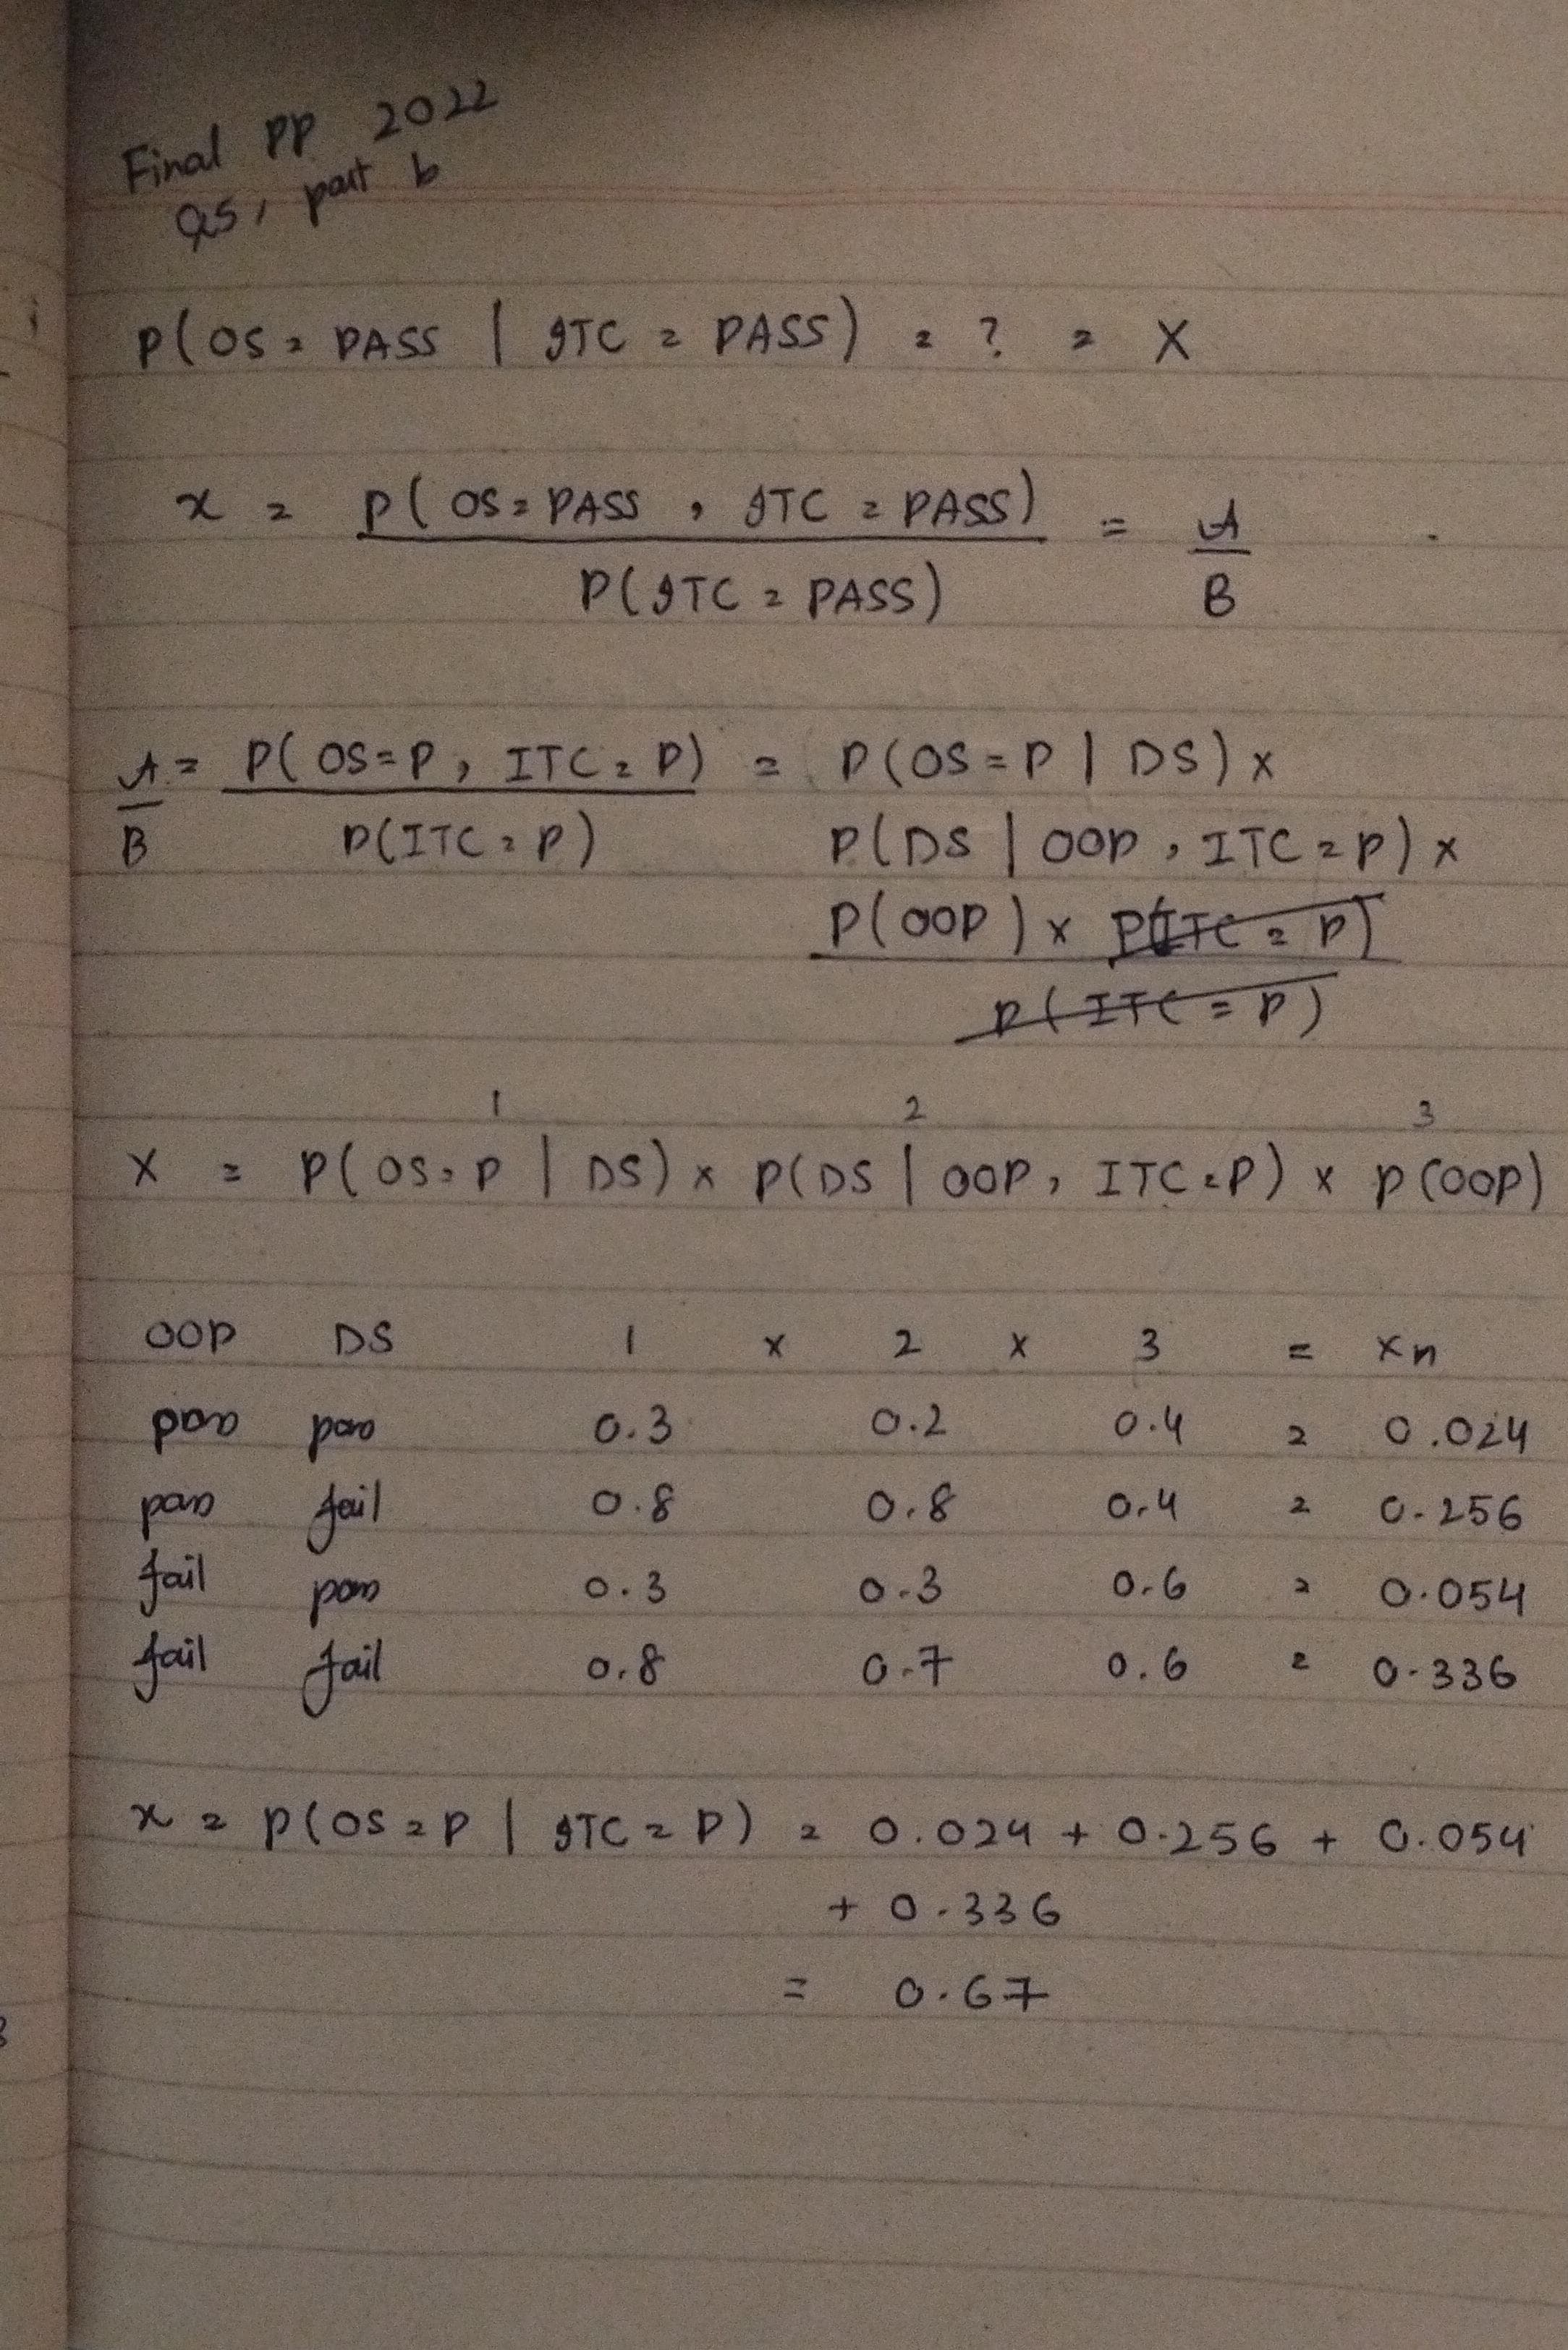 Final PP 2022
Q5, part b
P(OS = PASS | ITC = PASS) = ? = X
x = P(OS = PASS, ITC = PASS) = A
P(ITC = PASS) B
A = P(OS=P, ITC = P) = P(OS=P | DS) x
B P(ITC = P) P(DS | OOP, ITC = P) x
P(OOP) x P(ITC = P)
P(ITC = P)
1 2 3
X = P(OS=P | DS) x P(DS | OOP, ITC=P) x P(OOP)
OOP DS 1 x 2 x 3 = xn
pass pass 0.3 0.2 0.4 = 0.024
pass fail 0.8 0.8 0.4 = 0.256
fail pass 0.3 0.3 0.6 = 0.054
fail fail 0.8 0.7 0.6 = 0.336
x = P(OS=P | ITC = P) = 0.024 + 0.256 + 0.054
+ 0.336
= 0.67